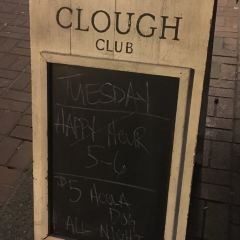 CLOUGH
CLUB
TUESDAY
HAPPY HOUR
5-6
$5 ACQUA
DUG
ALL NIGHT